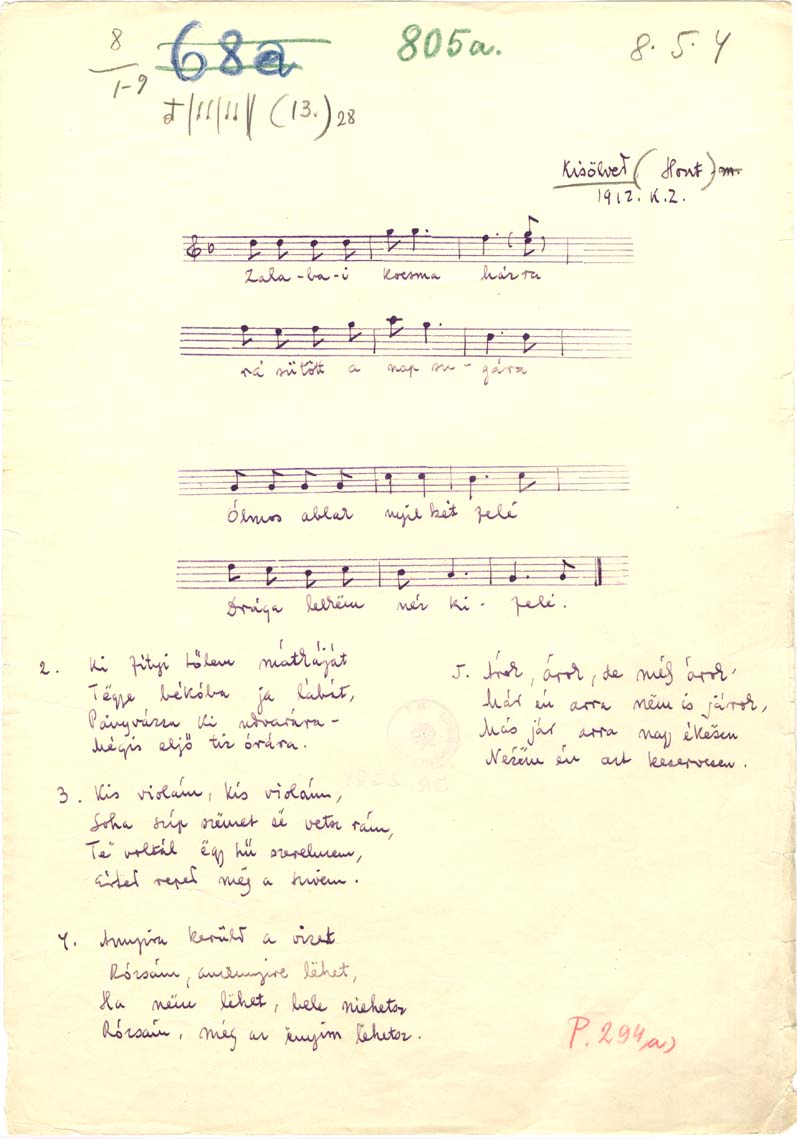 8
1-9
68a
805a.
8. 5. 4
(13.) 28
Kisölved (Hont) m.
1912. K.Z.
Zala-ba-i kocsma házra
rá sütött a nap su-gára
Ólmos ablak nyílkét felé
Drága lelkëm néz ki-felé.
2. Ki fityi tőlem mátkáját
Tëgye békóba ja lábát,
Pányvázza ki udvarára -
Mégis eljő tiz órára.
3. Kis violám, kis violám,
Soha szíp szëmet së vetsz rám,
Të voltál ëgy hű szerelmem,
Eírted reped még a szivem.
4. Annyira kerüld a vizet
Rózsám, amënnyire lëhet,
Ha nëm lëhet, bele mehetsz
Rózsám, még az ënyim lehetsz.
5. Árok, árok, de mély árok,
Már én arra nëm is járok,
Más jár arra nagy ékësen
Nézëm én azt keservesen.
P. 294, a)